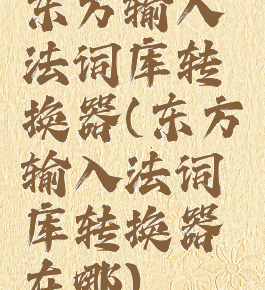 东方输入
法词库转
换器(东方
输入法词
库转换器
在哪)